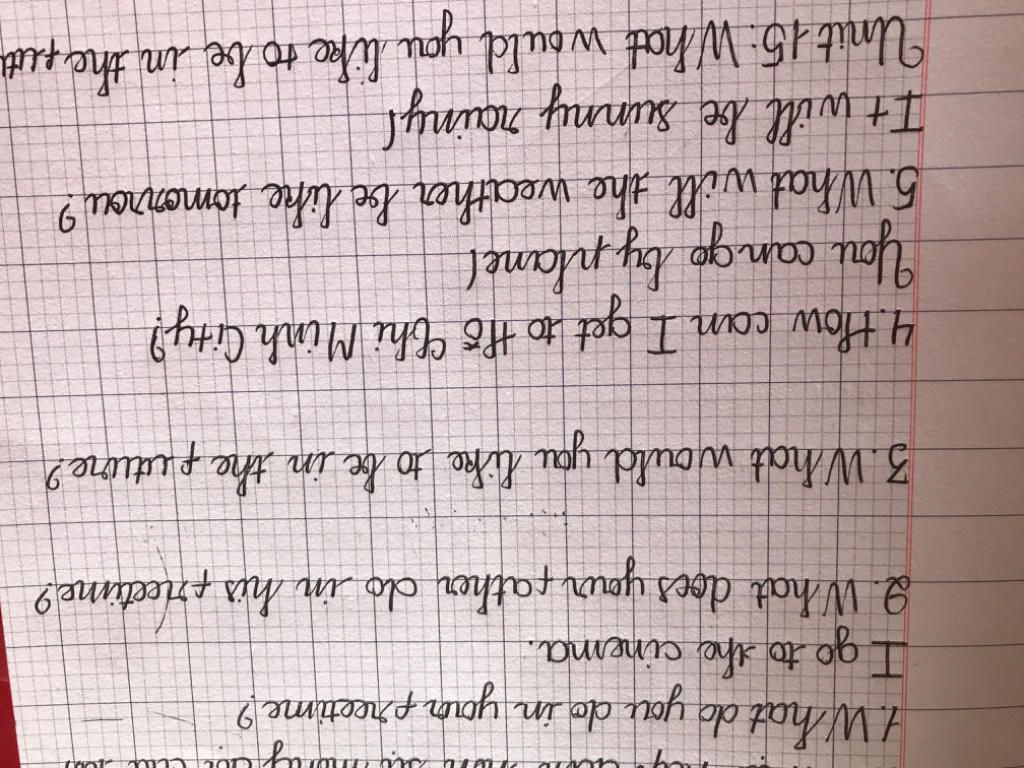 1. What do you do in your freetime?
I go to the cinema.
2. What does your father do in his freetime?
3. What would you like to be in the future?
4. How can I get to Hồ Chi Minh City?
You can go by plane!
5. What will the weather be like tomorrou?
It will be sunny rainy!
Unit 15: What would you like to be in the futu